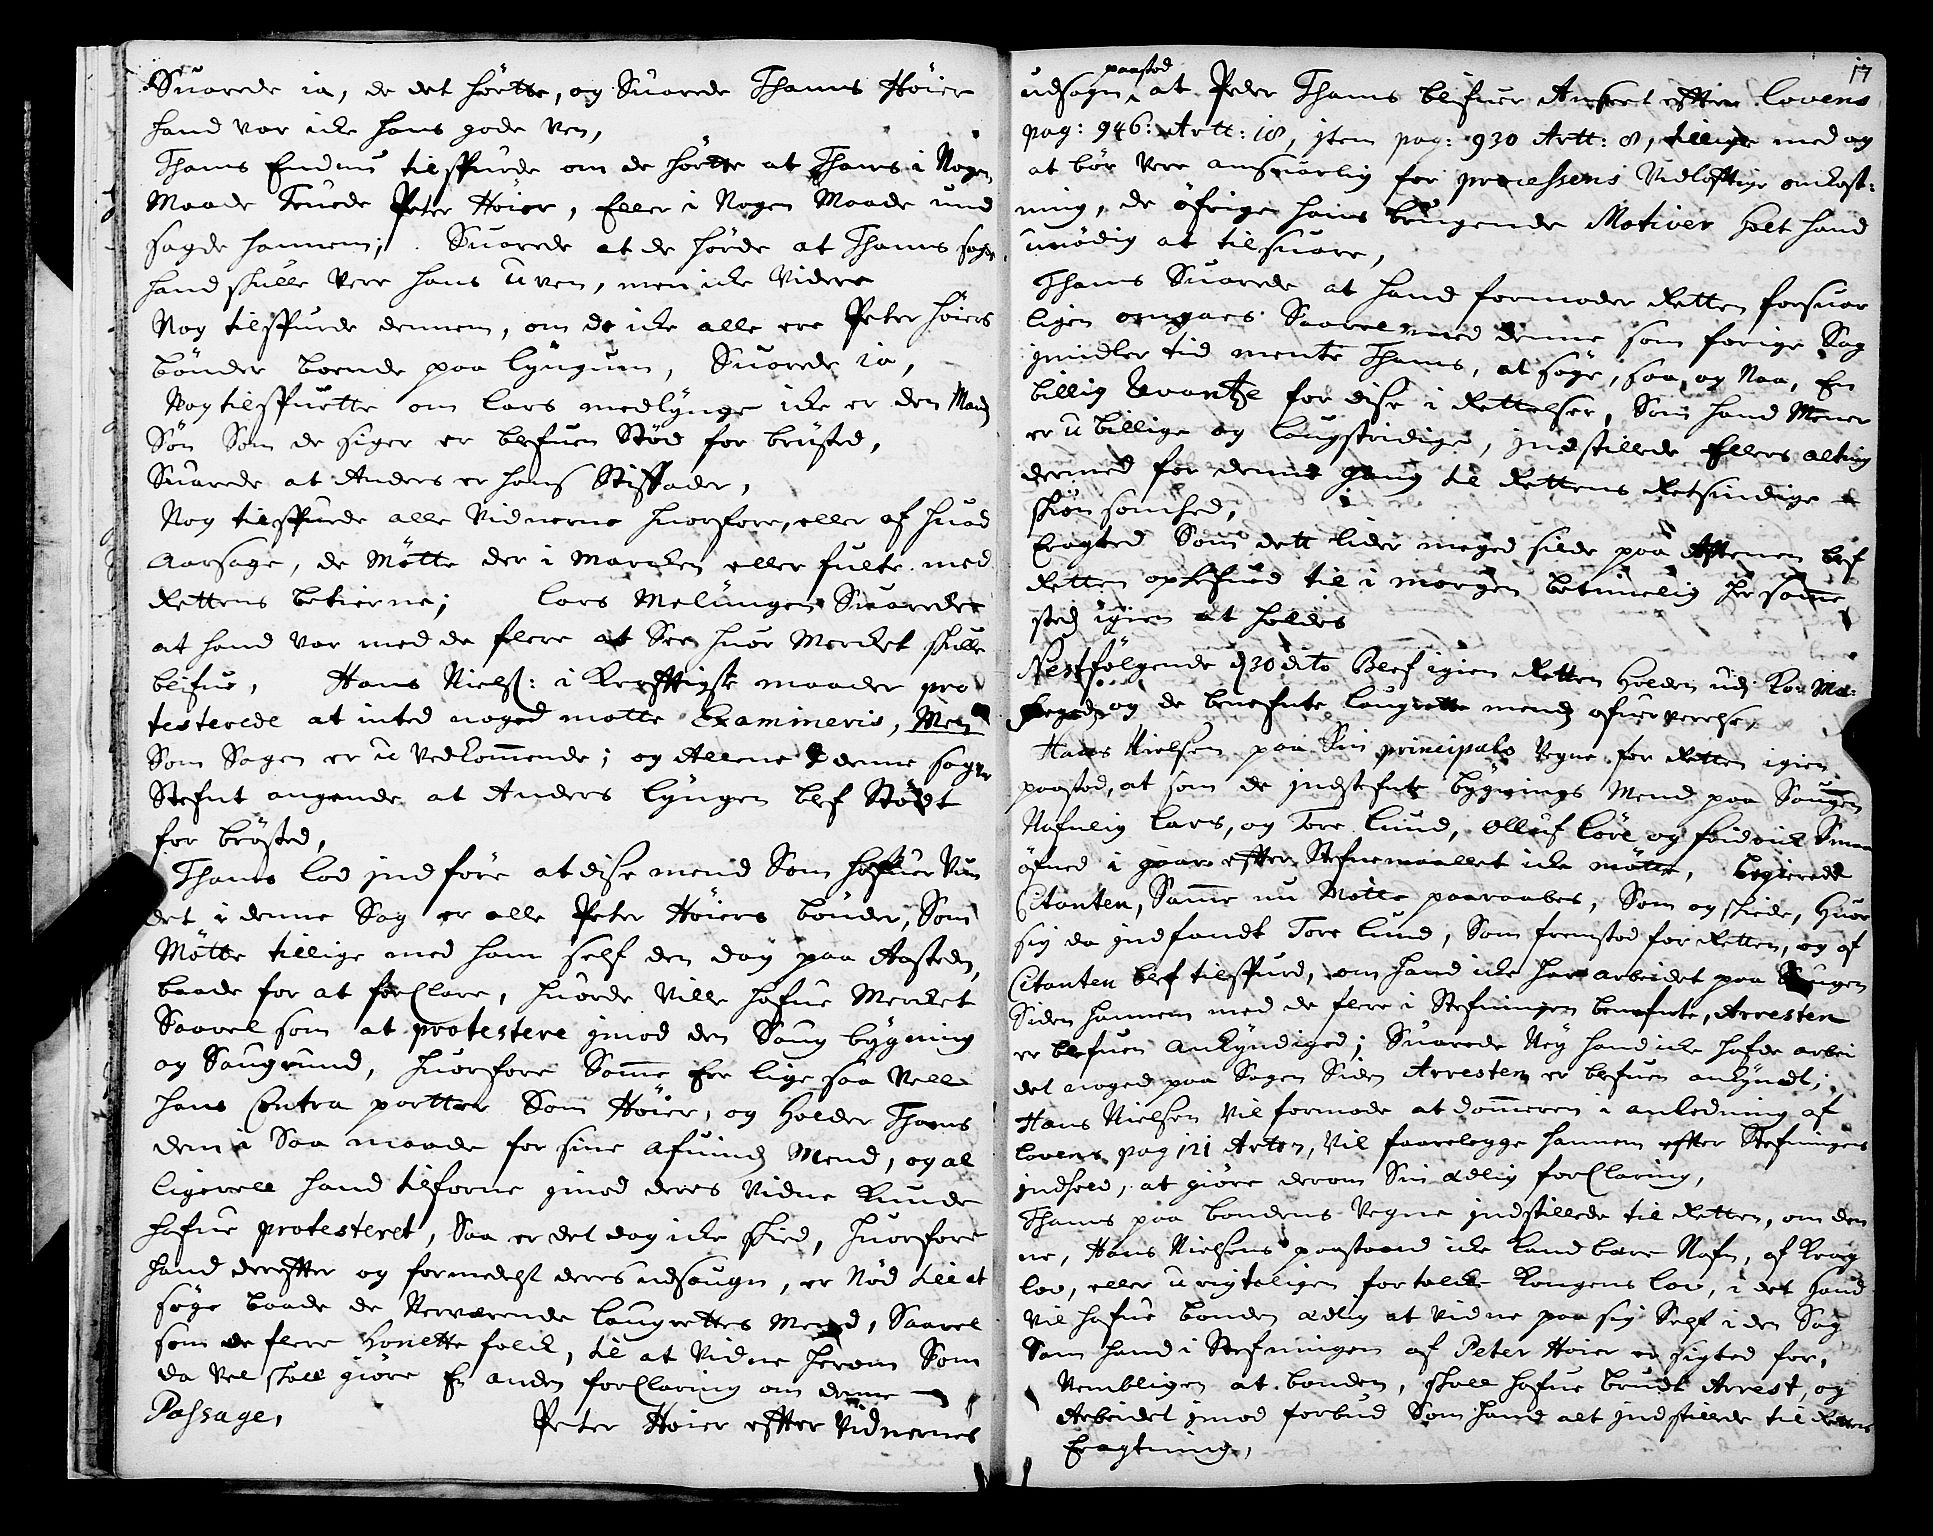 Suarede ia, de det hörtte, og Suarede Thams Höier
hand var icke hans gode Ven,
Thams Endnu tilspurde om de hörtte at Thams i Nogen
Maade Truede Peter Höier, Eller i Nogen Maade und
sagde hannem; Suarede at de hörde at Thams sagde
hand skulle Vere hans Uven, men icke Videre
Nog tilspurde dennem, om de icke alle ere Peter Höiers
bönder boende paa Lyngum, Suarede ia,
Nog tilspurtte om Lars medlynge icke er den Mandz
Sön Som de siger er blefuen Stöd for brösted,
Suarede at Anders er hans Stiffader,
Nog tilspurde alle Vidnerne huorfore, eller af huad
Aarsage, de Mötte der i Marcken eller fulte med
Rettens betiente; Lars Melüngen Suarede
at hand var med de flere at See huor Mercket skulle
blifue, Hans Nielss: i Krefftigste maader pro
testerede at inted noged motte Examineris, Men
Som Sagen er u Vedkommende; og Allene denne sag er
Stefnt angaende at Anders Lyngen blef Stödt
for brösted,
Thams lod jndföre at disse mend Som hafuer Vun
det i denne Sag er alle Peter Höiers bönder, Som
Mötte tillige med ham self den dag paa Aasteden,
baade for at forClare, huorde Ville hafue Mercket
Saavel som at protestere jmod den Saug bygning
og Saugrund, huorfore Samme Ere lige saa Vell
hans Contra partter Som Höier, og Holder Thams
dem i Saa maade for sine Afuindz Mend, og al
ligevell hand tilforne jmod deres Vidne Kunde
hafue protesteret, Saa er det dog icke skied, huorfore
hand derefter og formedelst deres udsaugn, er Nöd til at
söge baade de Nerværende Laugrettes Mend, Saavel
som de flere Honette folck, til at Vidne herom Som
da vel skall giöre En anden forClaring om denne
Passage, Peter Höier efter Vidnernes
17
paastod
udsagn at Peder Thams blifuer Anseet efter Lovens
pag: 946: Artt: 18, jtem pag: 930 Artt: 8, tillige med og
at bör Vere ansuarlig for processens Vidlöftige omkost:
ning, de öfrige hans bringende Motiver Holt hand
unödig at tilsuare,
Thams Suarede at hand formoder Retten forsuar
ligen omgaaes Saavel med denne som forige Sag
jmidler tid mente Thams, at söge, saa og Naa, En
billig for disse i Rettelser, Som hand Mener
er u billige og Laugstridige, jndstillede Ellers alting
dermed for denne gang til Rettens Retsindige
skiönsomhed,
Eragted Som dett lider meged silde paa Aftenen blef
Retten ophefued til i morgen betimelig her samme
sted igien at holdes
Nestfölgende d 30 dito Blef igien Retten Holden udj
og de benefnte Laugrettes mendz ofuerverelse,
Hans Nielsen paa Sin principals Vegne for Retten igien
paastod, at som de jndstefnte bygnings Mend paa Saugen
Nafnlig Lars, og Tore Lund, Olluf Löre og
öfned i gaar efter Stefnemaallet icke mötte, begierede
Citanten, Samme nu Motte paaraabes, Som og skiede, Huor
sig da jndfandt Tore Lund, Som fremstod for Retten, og af
Citanten blef tilspurd, om hand icke har arbeidet paa Saugen
Siden hannem med de flere i Stefningen benefnte, Arresten
er blefuen ankyndiged; Suarede Ney hand icke hafde arbei
det noged paa Sagen Siden Arresten er blefuen ankyndt;
Hans Nielsen Vil formode at dommeren i anledning af
Lovens pag 121 Arten, Vil faarelegge hannem efter Stefningens
jndhold, at giöre derom Sin Edlig forClaring,
Thams paa bondens Vegne jndstillede til Retten, om den
ne, Hans Nielsens paastand icke Kand bære Nafn, af
lov, eller urigtaligen fortolcke Kongens lov, i det hand
Vil hafue bonden Edlig at Vidne paa sig Self i den Sag
Som hand i Stefningen af Peter Höier er sigted for,
Nembligen at bonden, skall hafue brudt Arrest, og
Arbeidet jmod forbud Som hand alt jndstillede til Rettens
Eragtning,